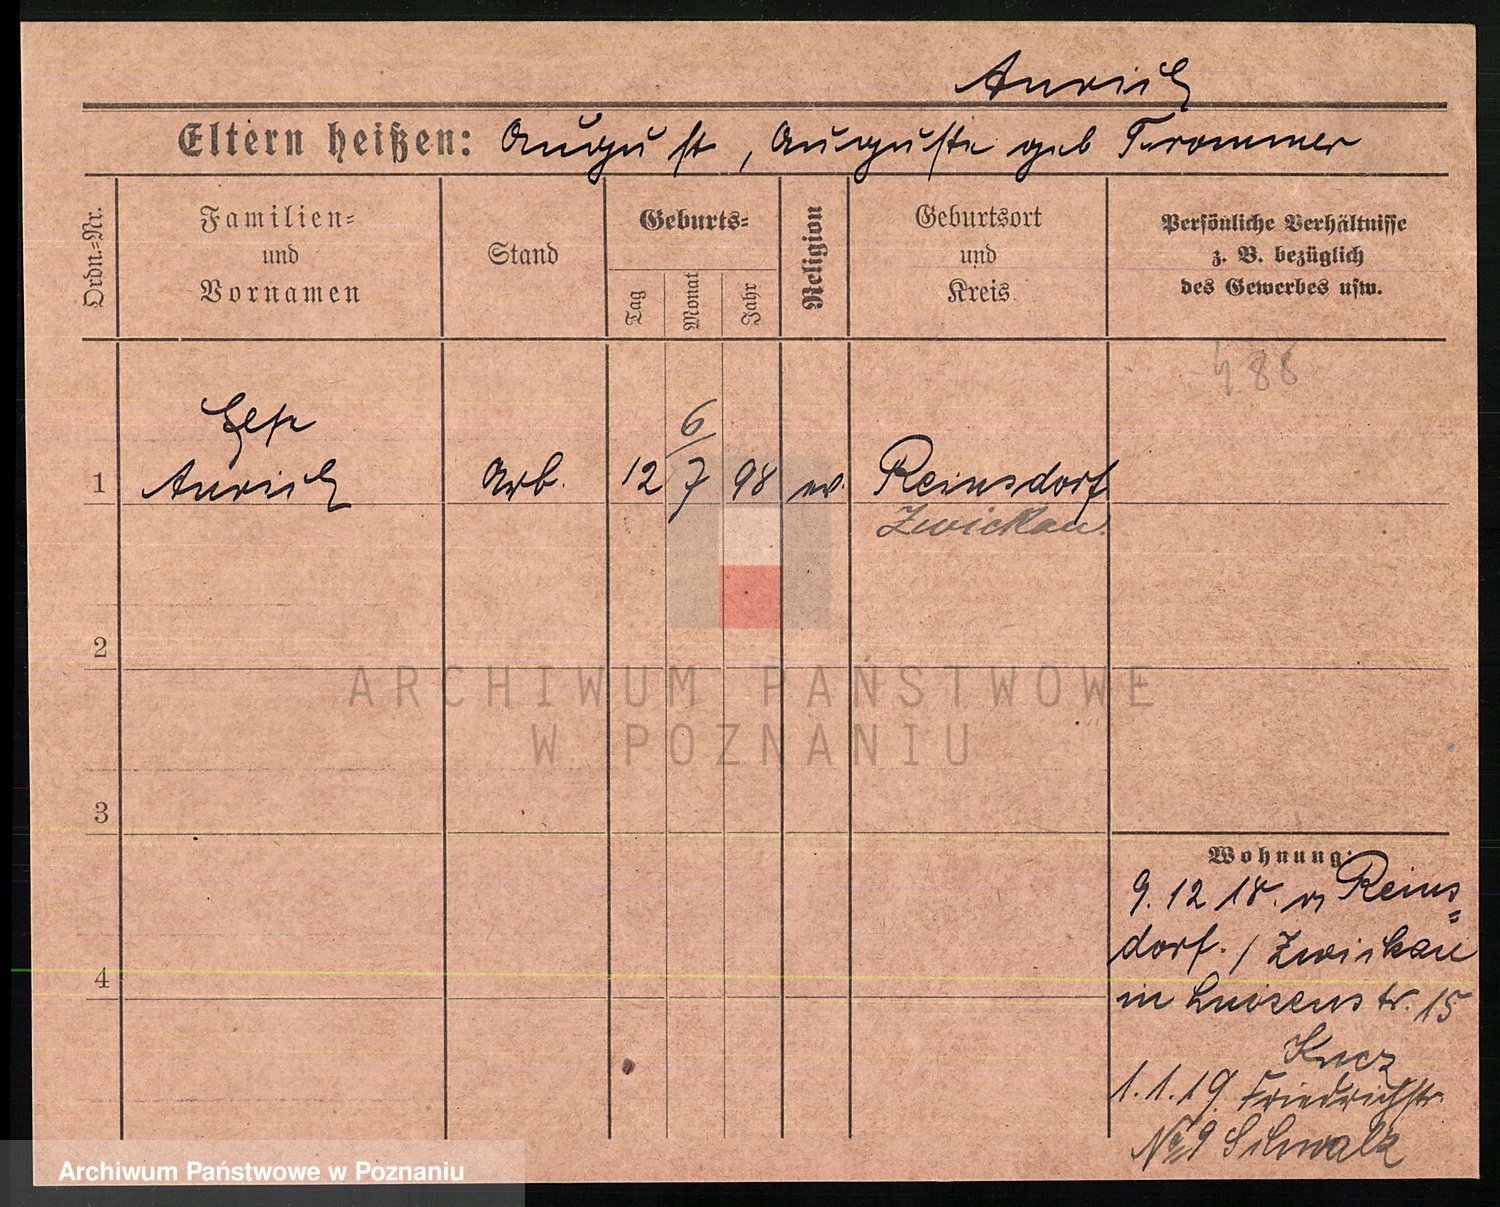 Anrich
Eltern heißen: August, Auguste geb Trommer
Ordn.=Nr.
Familien=
und
Vornamen
Stand
Geburts=
Tag
Monat
Jahr
Religion
Geburtsort
und
Kreis
Persönliche Verhältnisse
z. B. bezüglich
des Gewerbes usw.
488
6
1 Anrich Arb. 12 7 98 ev. Reinsdorf
Zwickau.
2
3
4
Wohnung:
9. 12 18. v Reins=
dorf. / Zwickau
in Luisenstr. 15
1. 1. 19. Friedrichstr
No 9 Schwalk
ARCHIWUM PAŃSTWOWE
W POZNANIU
Archiwum Państwowe w Poznaniu